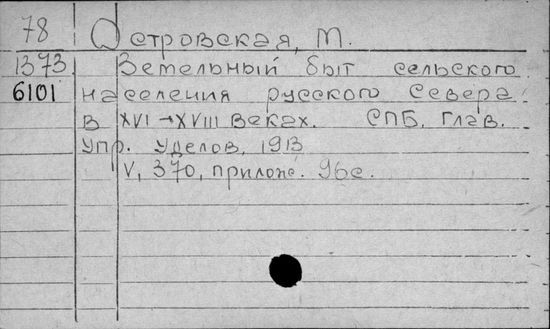 78 Островская, М.
1373 Земельный быт сельского
6101 населения русского Севера
в XVI → XVIII веках. СПБ, Глав.
упр. Уделов, 1913
V, 370, прилож. 96с.